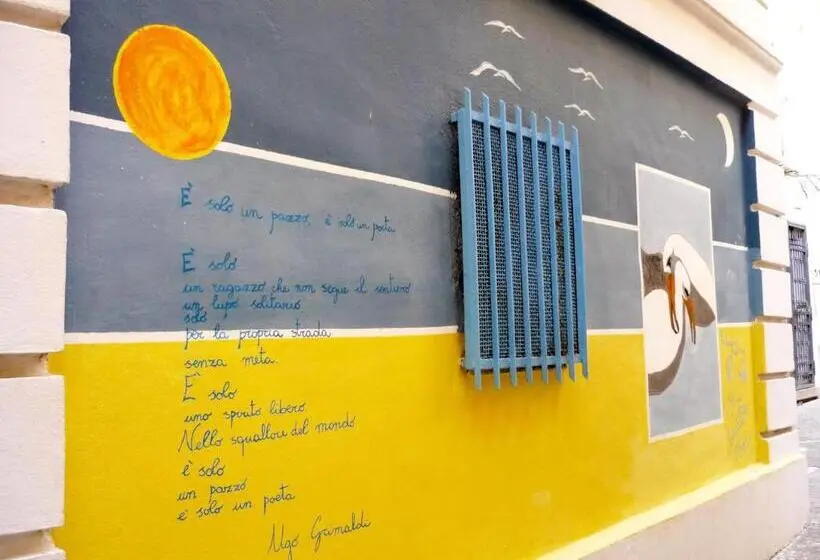 È solo un pazzo, è solo un poeta
È solo
un ragazzo che non segue il sentiero
un lupo solitario
solo
per la propria strada
senza meta.
È solo
uno spirito libero
Nello squallore del mondo
è solo
un pazzo
e solo un poeta
Ugo Grimaldi